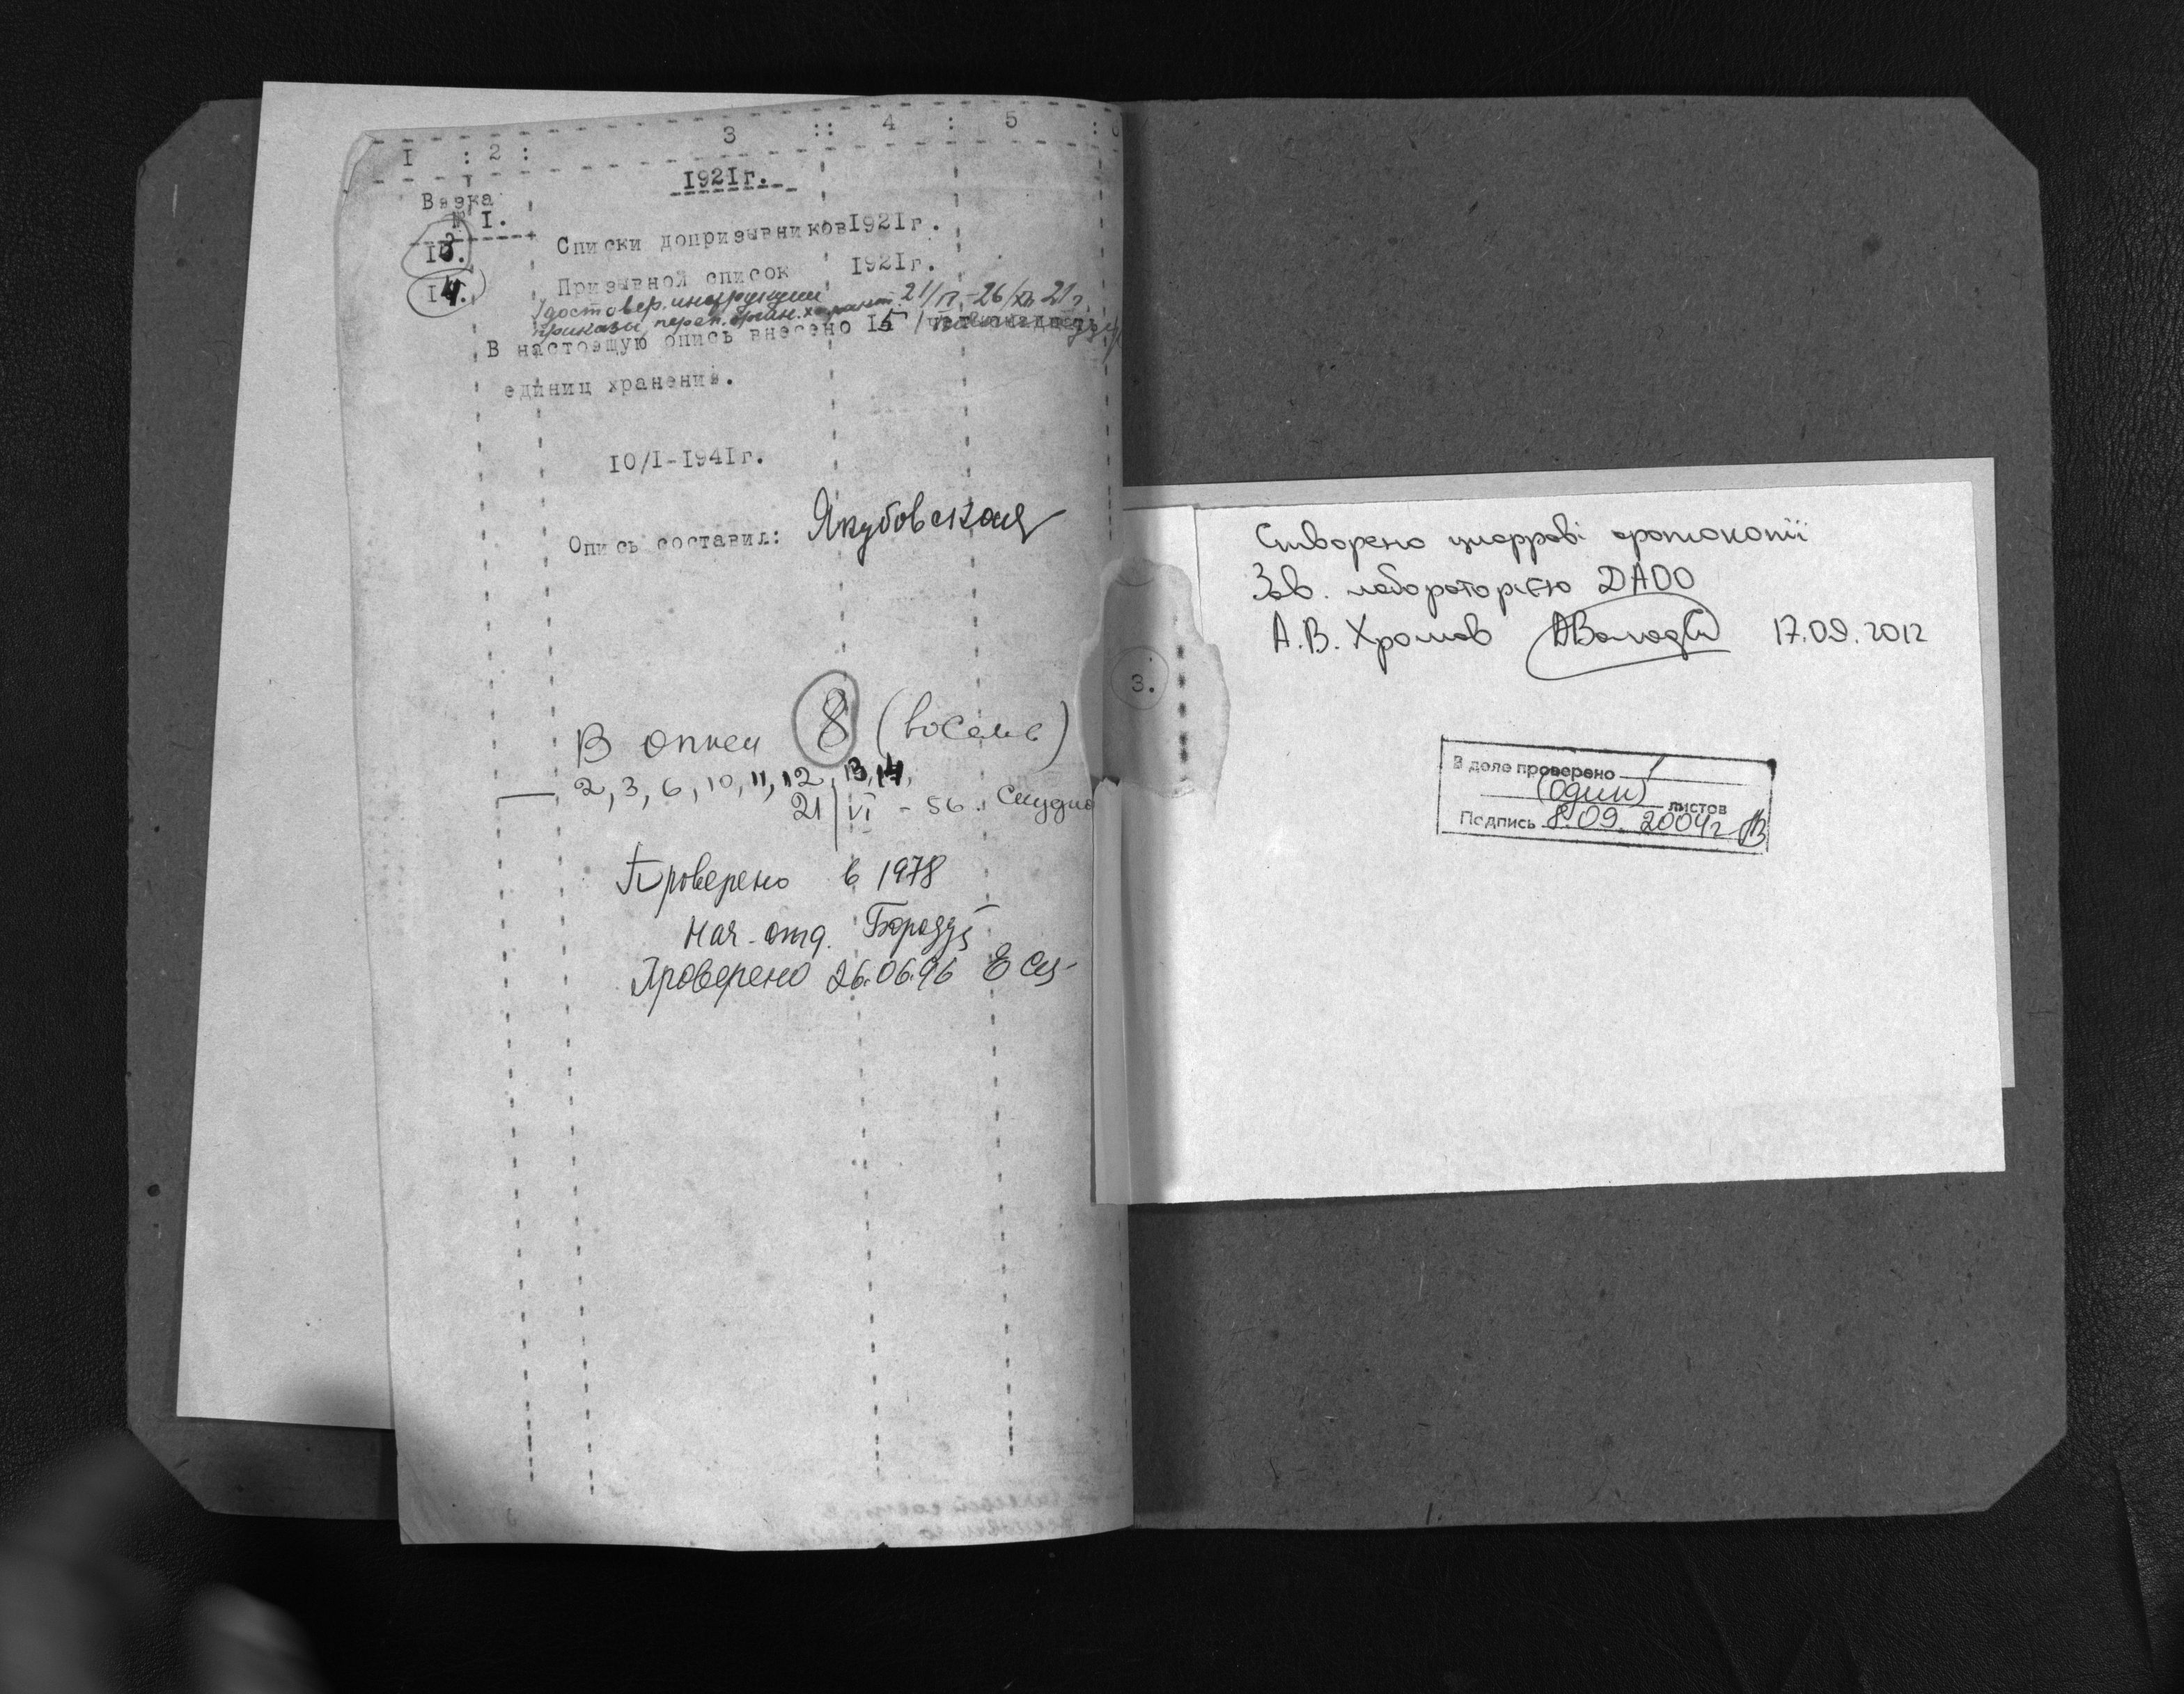 I : 2 : 3 :: 4 : 5 :
1921г.
Вязка
№ I.
13. Списки допризывников 1921г.
14. Призывной список 1921г.
Удостовер. инструкции
приказы, переп. орган. характ. 21/II-26/XII 21г.
В настоящую опись внесено 15
единиц хранения.
10/I-1941г.
Опись составил: Якубовская
В описи 8 (восемь)
2, 3, 6, 10, 11, 12, 13, 14,
21/VI - 56.
Проверено в 1978
Нач. отд.
Проверено 26.06.96
3.
Створено цифрові фотокопії
Зав. лабораторією ДАОО
А.В. Хромов 17.09.2012
В деле проверено 1
(один) листов
Подпись 8.09.2004г